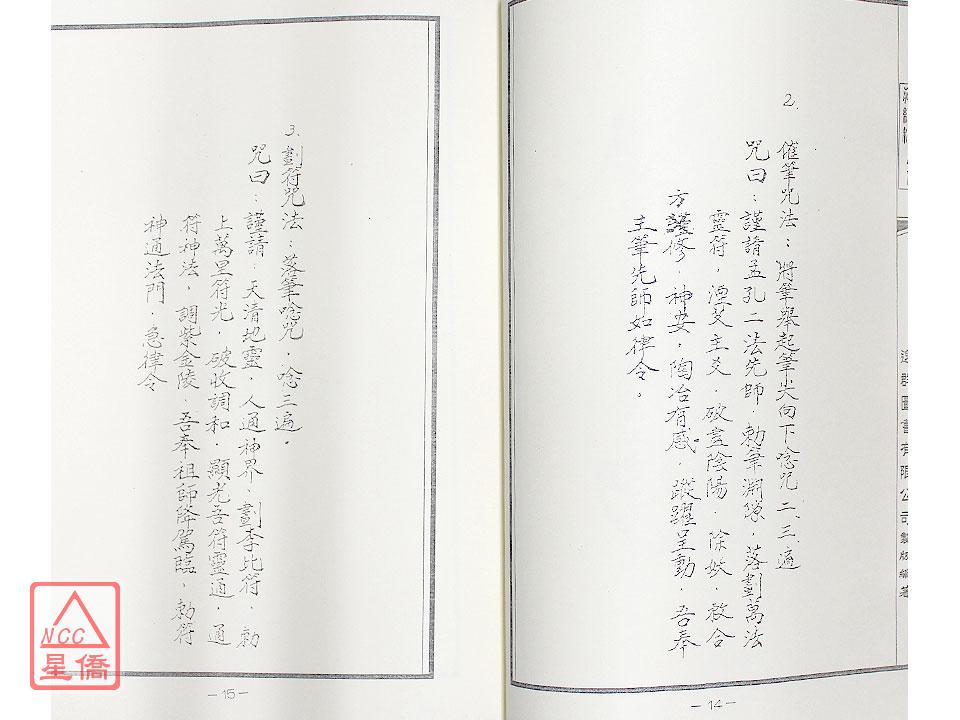 2.
催筆咒法：將筆舉起筆尖向下唸咒二、三遍
咒曰：謹請孟孔二法先師．勅筆淵隊．落劃萬法
靈符，湮爻主爻．破晝陰陽．除妖．救合
方謹修．神安，陶冶有感．蹤躍呈動．吾奉
主筆先師如律令。
－14－
3.
劃符咒法：落筆唸咒．唸三遍．
咒曰：謹請．天清地靈．人通神界．劃李比符．勅
上萬里符光．破收調和．顯老吾符靈通．通
符神法．調紫金陵．吾奉祖師降駕臨．勅符
神通法門．急律令
－15－
逸群圖書有限公司製版編著
NCC
星僑